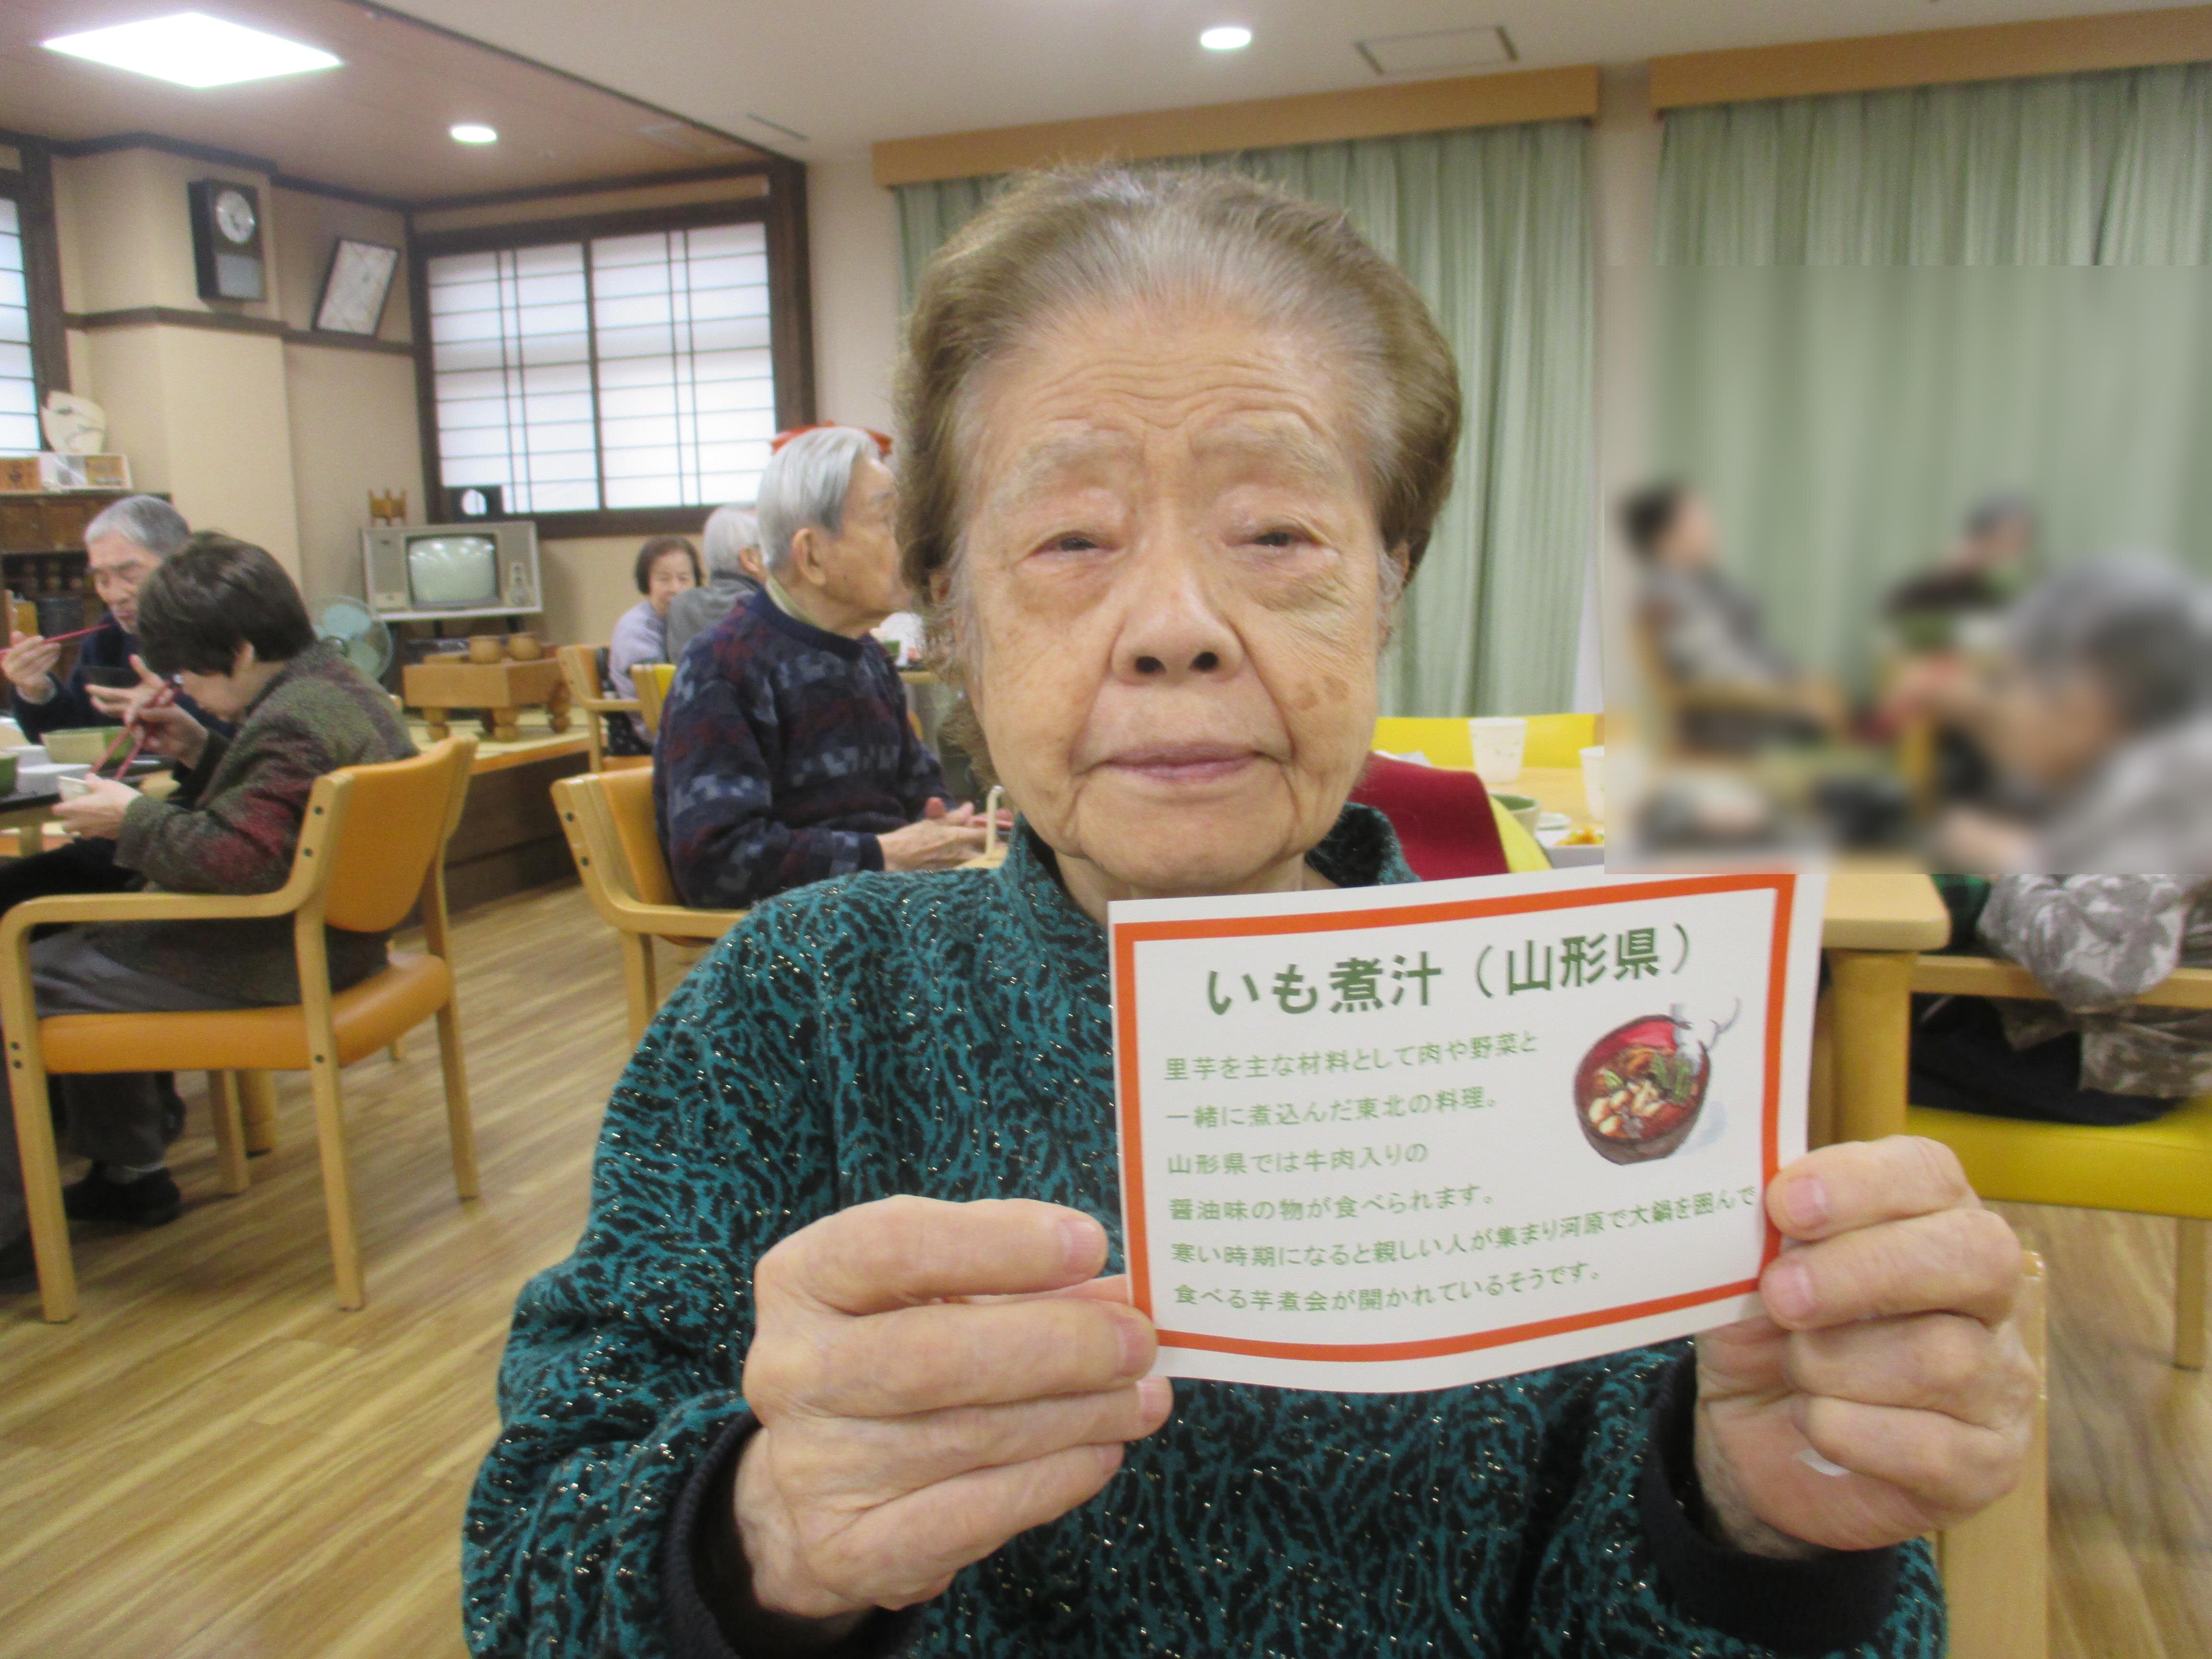 いも煮汁（山形県）
里芋を主な材料として肉や野菜と
一緒に煮込んだ東北の料理。
山形県では牛肉入りの
醤油味の物が食べられます。
寒い時期になると親しい人が集まり河原で大鍋を囲んで
食べる芋煮会が開かれているそうです。